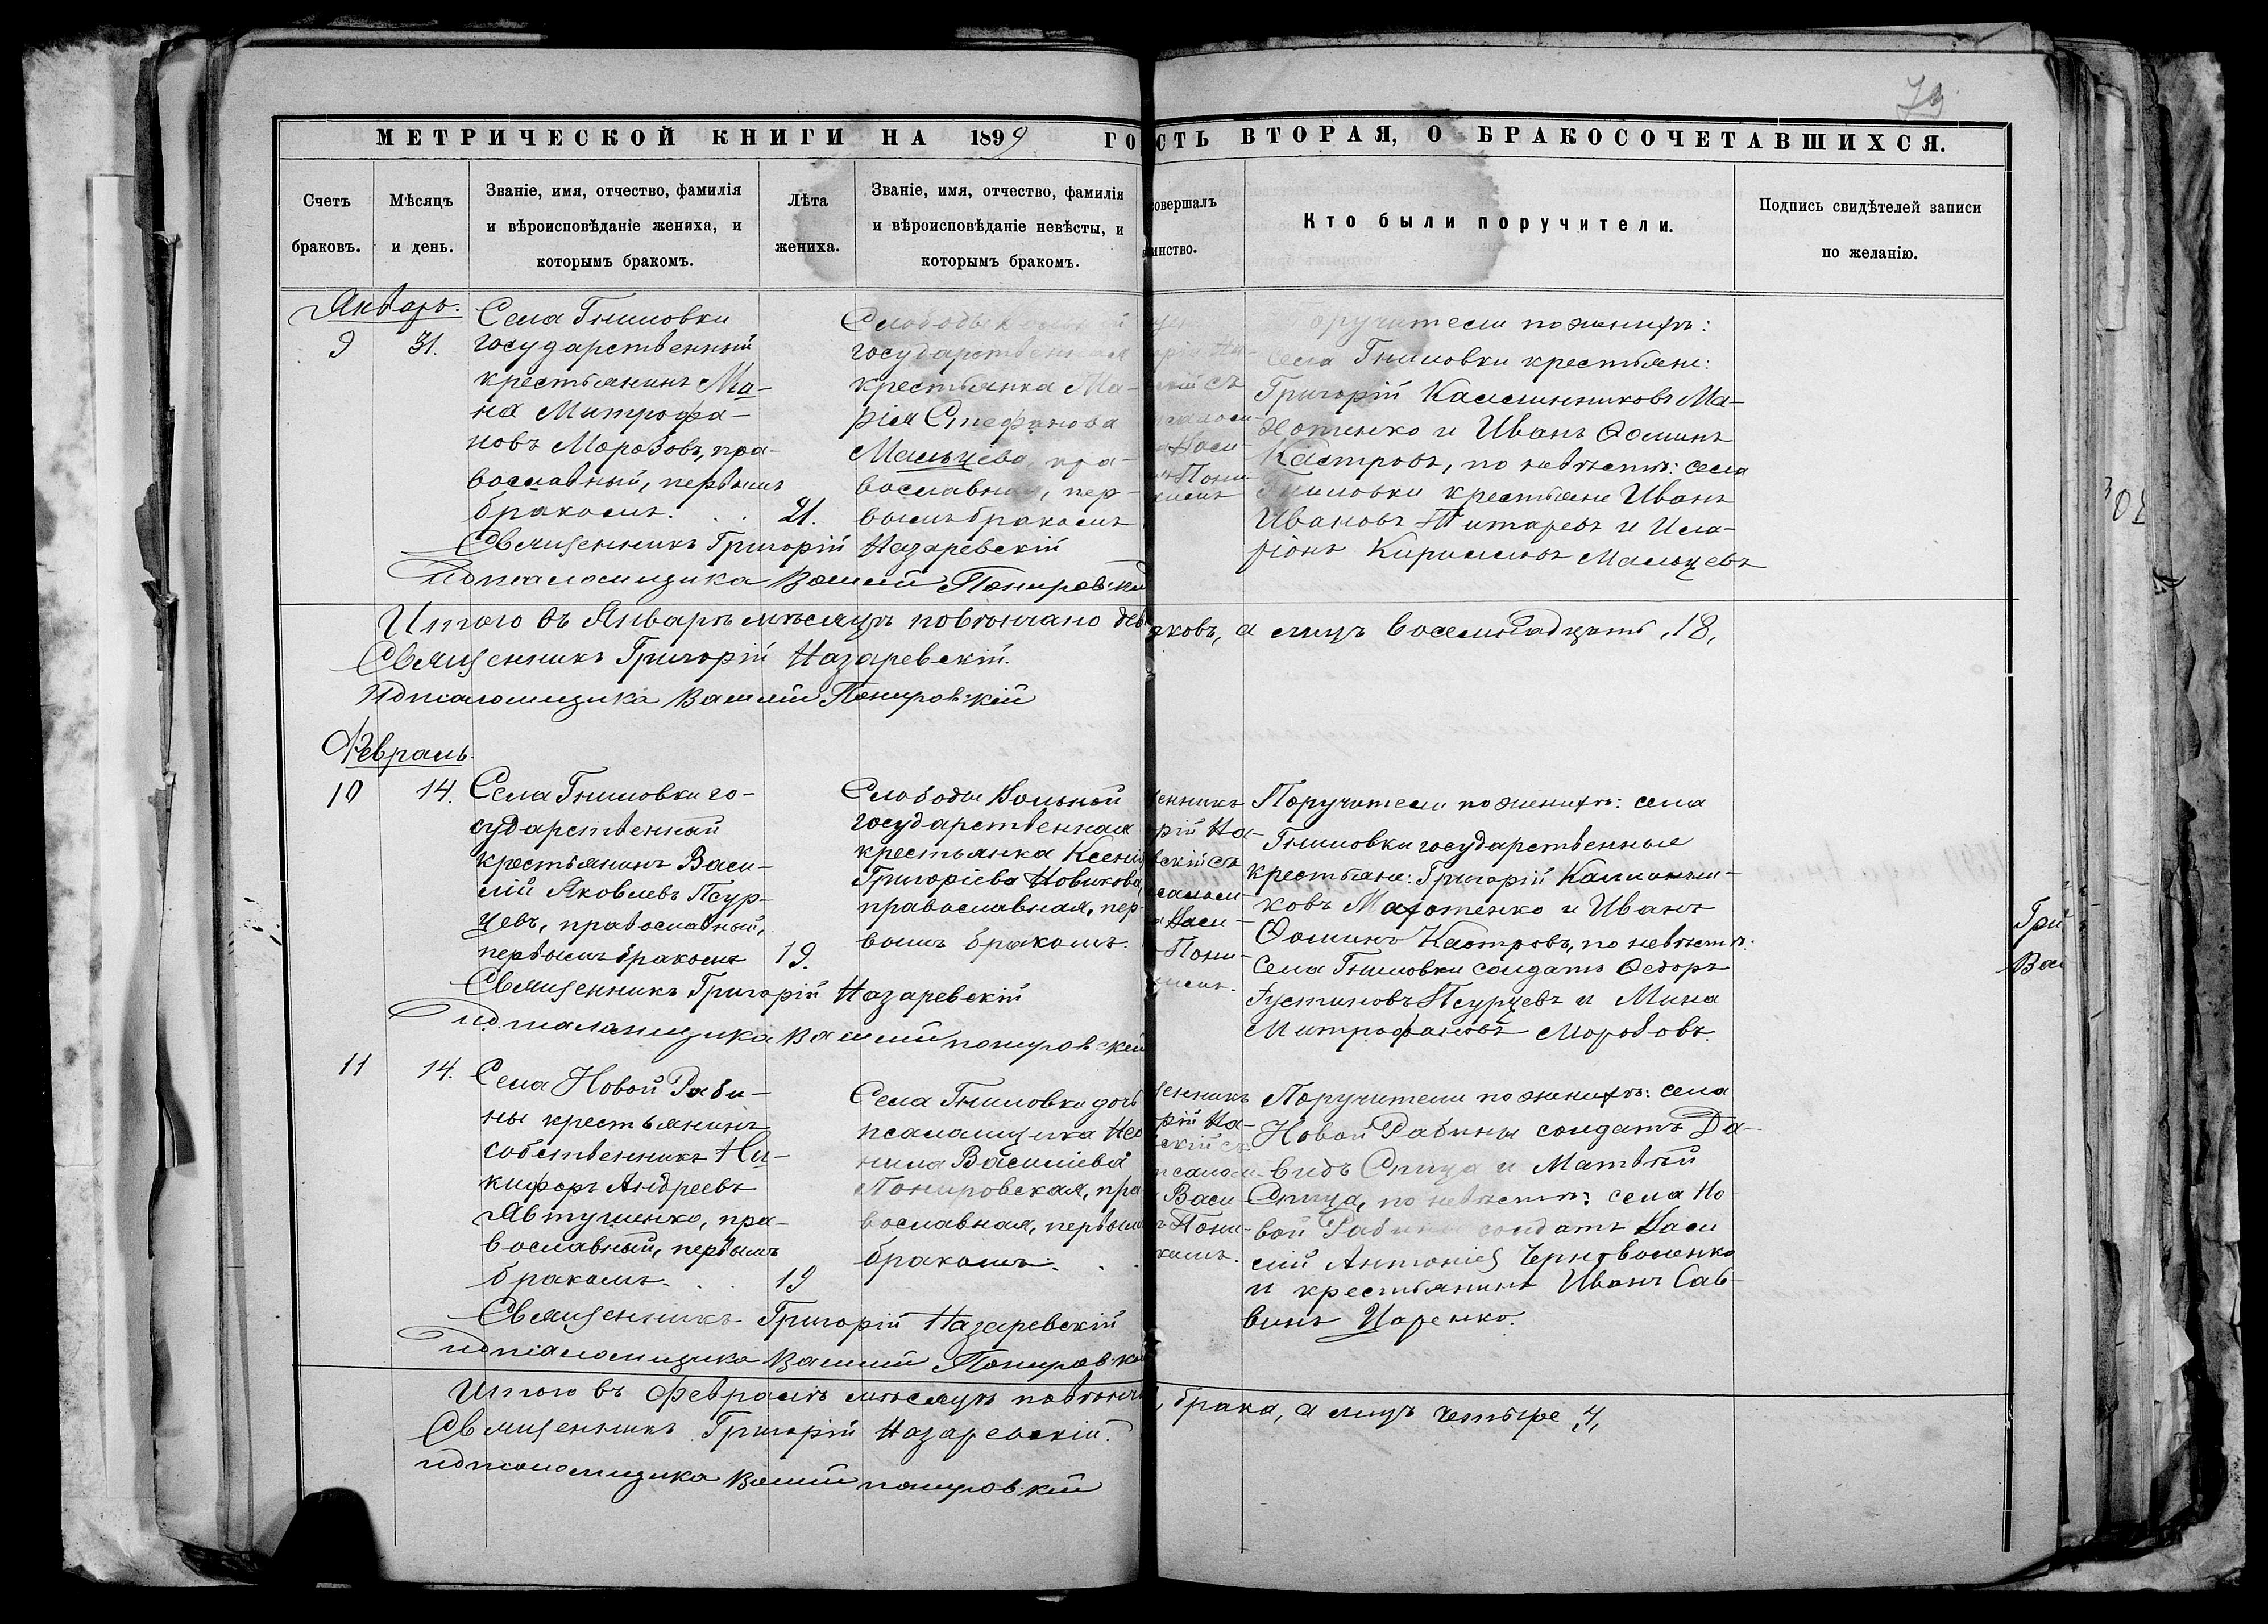 79
МЕТРИЧЕСКОЙ КНИГИ НА 1899 ГО
СТЬ ВТОРАЯ, О БРАКОСОЧЕТАВШИХСЯ.
Счетъ
браковъ.
Мѣсяцъ
и день.
Званіе, имя, отчество, фамилія
и вѣроисповѣданіе жениха, и
которымъ бракомъ.
Лѣта
жениха.
Званіе, имя, отчество, фамилія
и вѣроисповѣданіе невѣсты, и
которымъ бракомъ.
совершалъ
инство.
Кто были поручители.
Подпись свидѣтелей записи
по желанію.
Январь.
9
31.
Села Гниловки
государственный
крестьянинъ Ми-
на Митрофа-
новъ Морозовъ, пра-
вославный, первымъ
бракомъ. . .
21.
Слободы
государственная
крестьянка Ма-
рія Стефанова
Мальцева, пра-
вославная, пер-
вымъ бракомъ
рій На-
скій съ
Васи-
Пони-
кимъ
оручители по женихѣ:
села Гниловки крестьяне:
Григорій Каллинниковъ Ма-
хотенко и Иванъ Ѳоминъ
Кастровъ, по невѣстѣ: села
Гниловки крестьяне Иванъ
Ивановъ Титаревъ и Ила-
ріонъ Кирилловъ Мальцевъ
Священникъ Григорій Назаревскій
И д псаломщика Василій Понировскій
Итого въ Январѣ мѣсяцѣ повѣнчано дев
яковъ, а лицъ восемнадцать „18„
Священникъ Григорій Назаревскій.
И д псаломщика Василій Понировскій
Февраль.
10
14.
Села Гниловки го-
сударственный
крестьянинъ Васи-
лій Яковлевъ Псур-
цевъ, православный,
первымъ бракомъ
19.
Слободы Вольной
государственная
крестьянка Ксенія
Григоріева Новикова,
православная, пер-
вымъ бракомъ.
щенникъ
рій На-
вскій съ
саломщ-
Васи-
Пони-
кимъ.
Поручители по женихѣ: села
Гниловки государственные
крестьяне: Григорій Каллинни-
ковъ Махотенко и Иванъ
Ѳоминъ Кастровъ, по невѣстѣ:
Села Гниловки солдатъ Ѳедоръ
Густиновъ Псурцевъ и Мина
Митрофановъ Морозовъ.
Гри
Вас
Священникъ Григорій Назаревскій
И д псаломщика Василій Понировскій
11
14.
Села Новой Раби-
ны крестьянинъ
собственникъ Ни-
кифоръ Андреевъ
Явтушенко, пра-
вославный, первымъ
бракомъ. . .
19
Села Гниловки дочь
псаломщика Нео
нила Василіева
Понировская, пра
вославная, первым
бракомъ. . .
щенникъ
рій На-
скій съ
псалом
Васи
Пони-
кимъ.
Поручители по женихѣ: села
Новой Рабины солдатъ Да-
видъ Спица и Матвѣй
Спица, по невѣстѣ: села Но
вой Рабины солдатъ Васи
лій Антоніев Черноволенко
и крестьянинъ Иванъ Сав-
винъ Царенко.
Священникъ Григорій Назаревскій
И д псаломщика Василій Понировскій
Итого въ Февралѣ мѣсяцѣ повѣнч
брака, а лицъ четыре „4„
Священникъ Григорій Назаревскій.
И д псаломщика Василій Понировскій